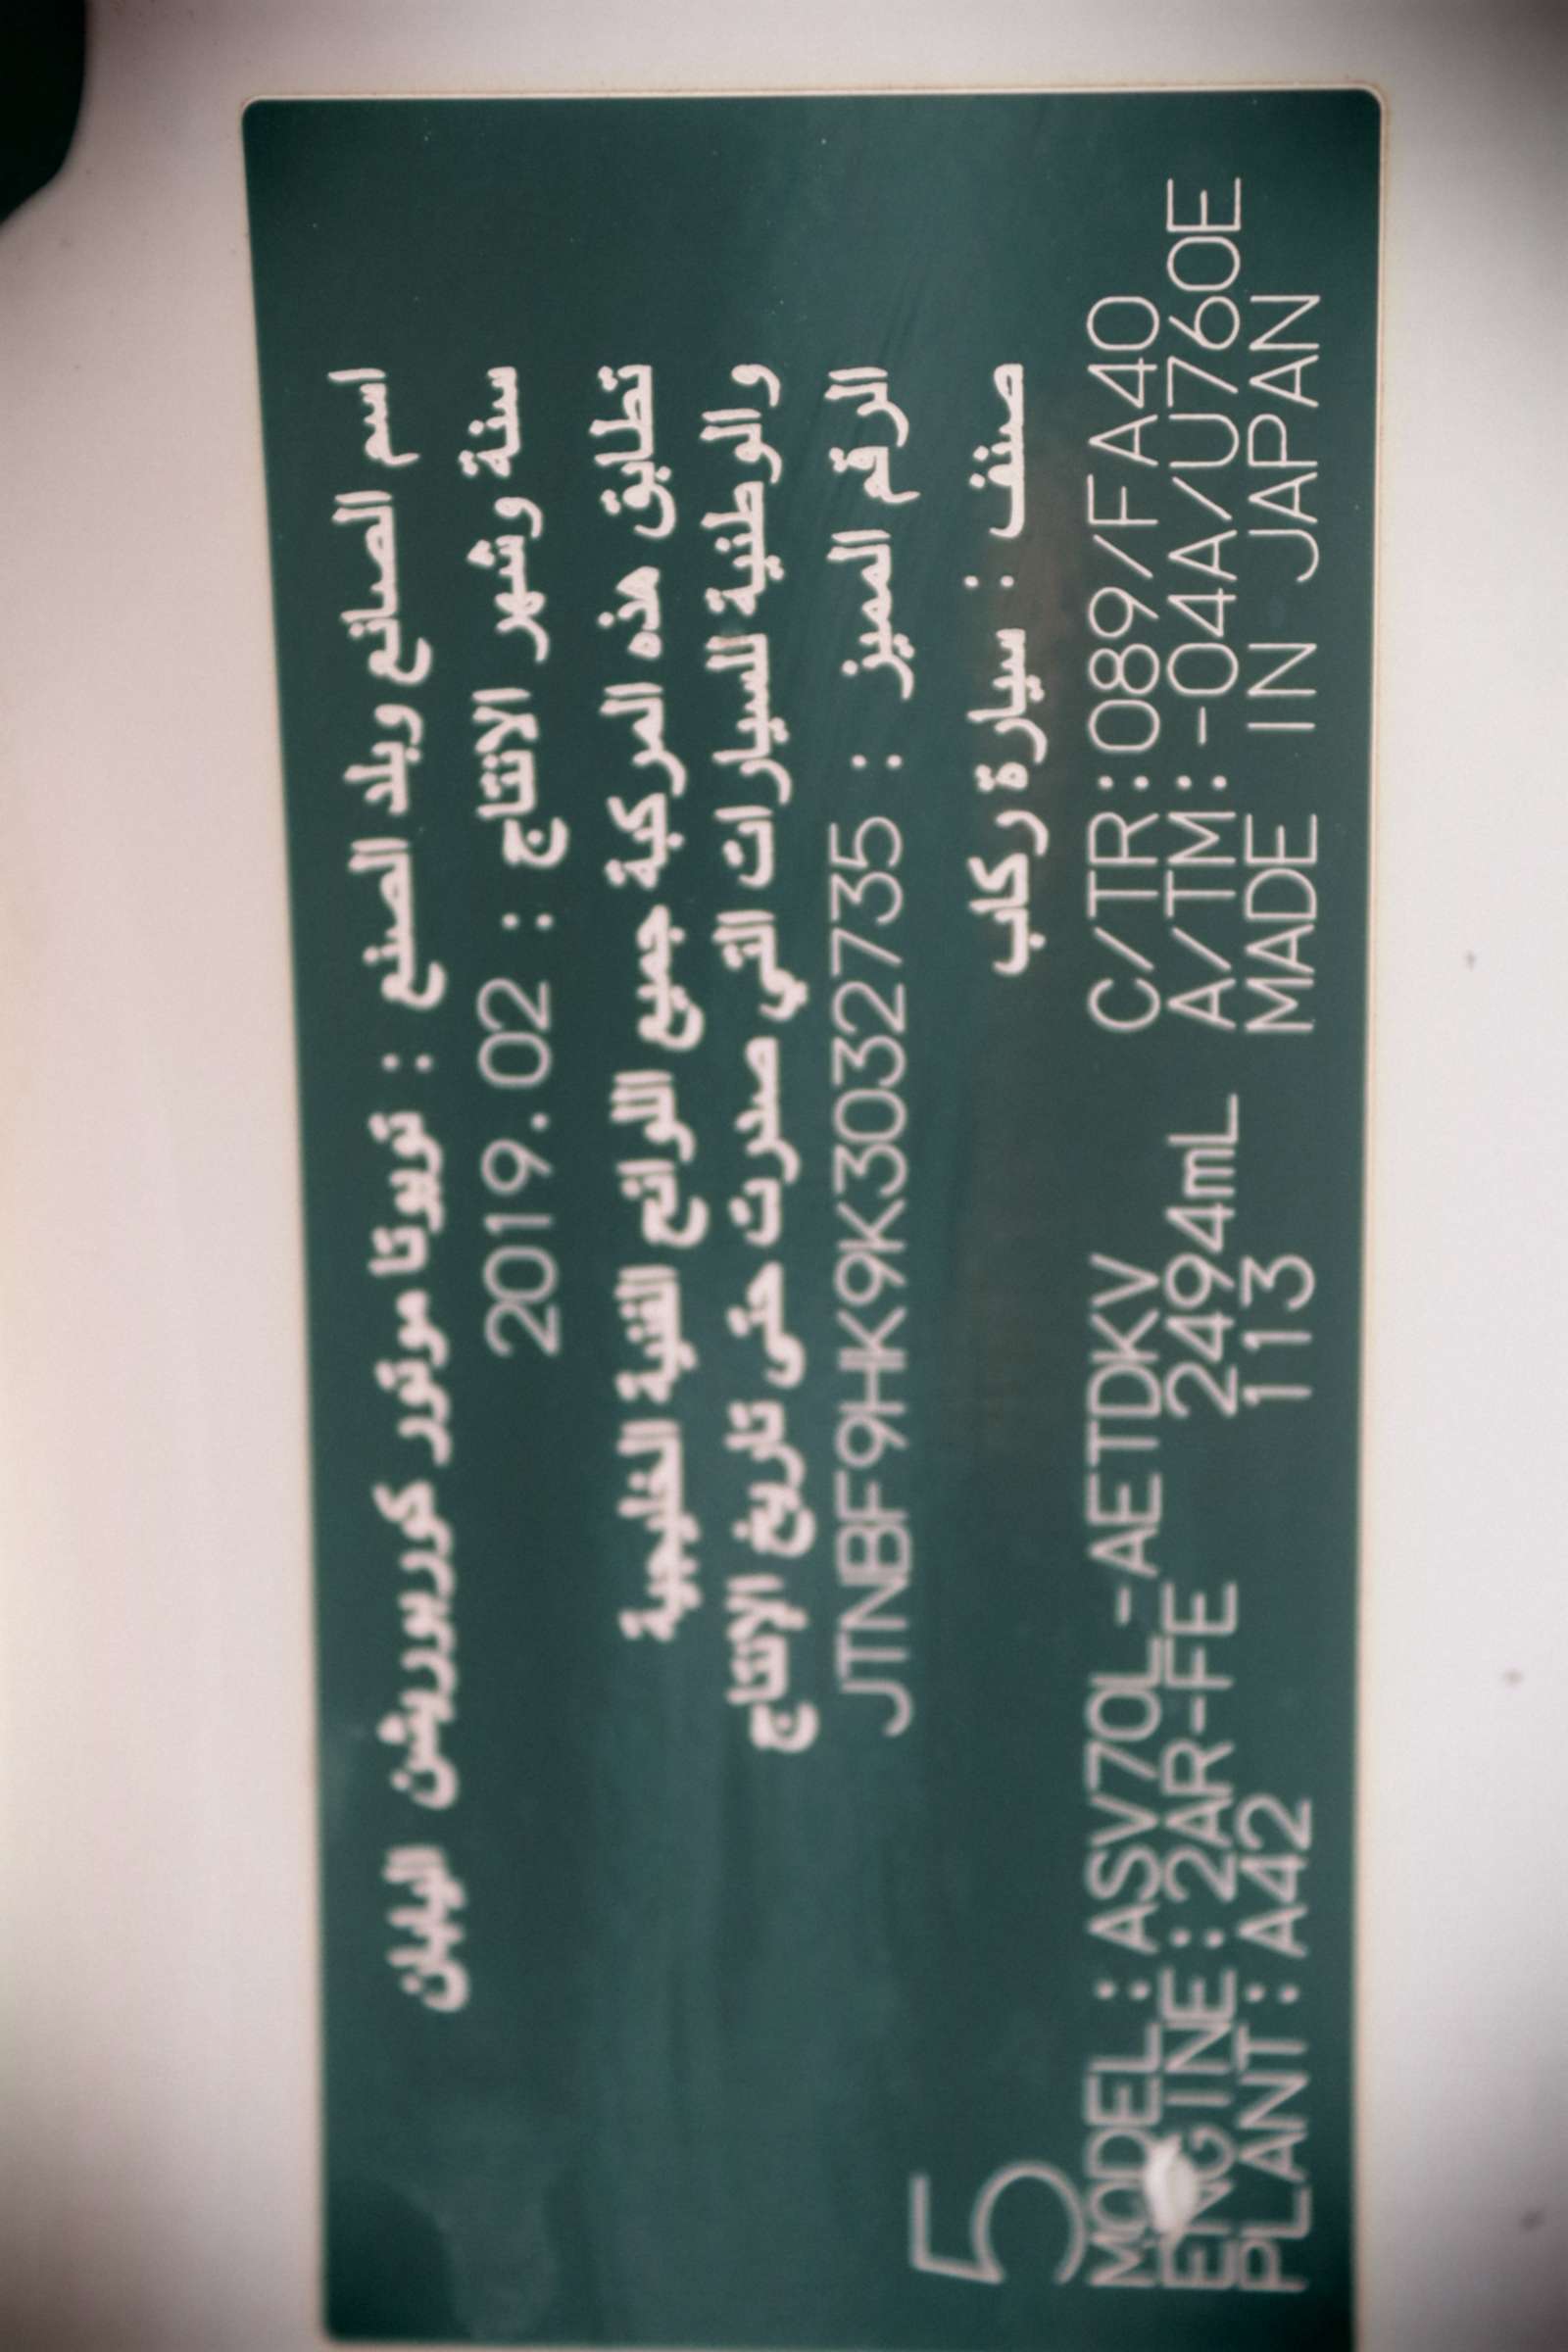 اسم الصانع وبلد الصنع : تويوتا موتور كوربوريشن اليابان
سنة وشهر الانتاج : 2019.02
تطابق هذه المركبة جميع اللوائح الفنية الخليجية
والوطنية للسيارات التي صدرت حتى تاريخ الإنتاج
الرقم المميز : JTNBF9HK9K3032735
صنف : سيارة ركاب
5
MODEL : ASV70L-AETDKV C/TR:089/FA40
ENGINE : 2AR-FE 2494mL A/TM:-04A/U760E
PLANT : A42 113 MADE IN JAPAN